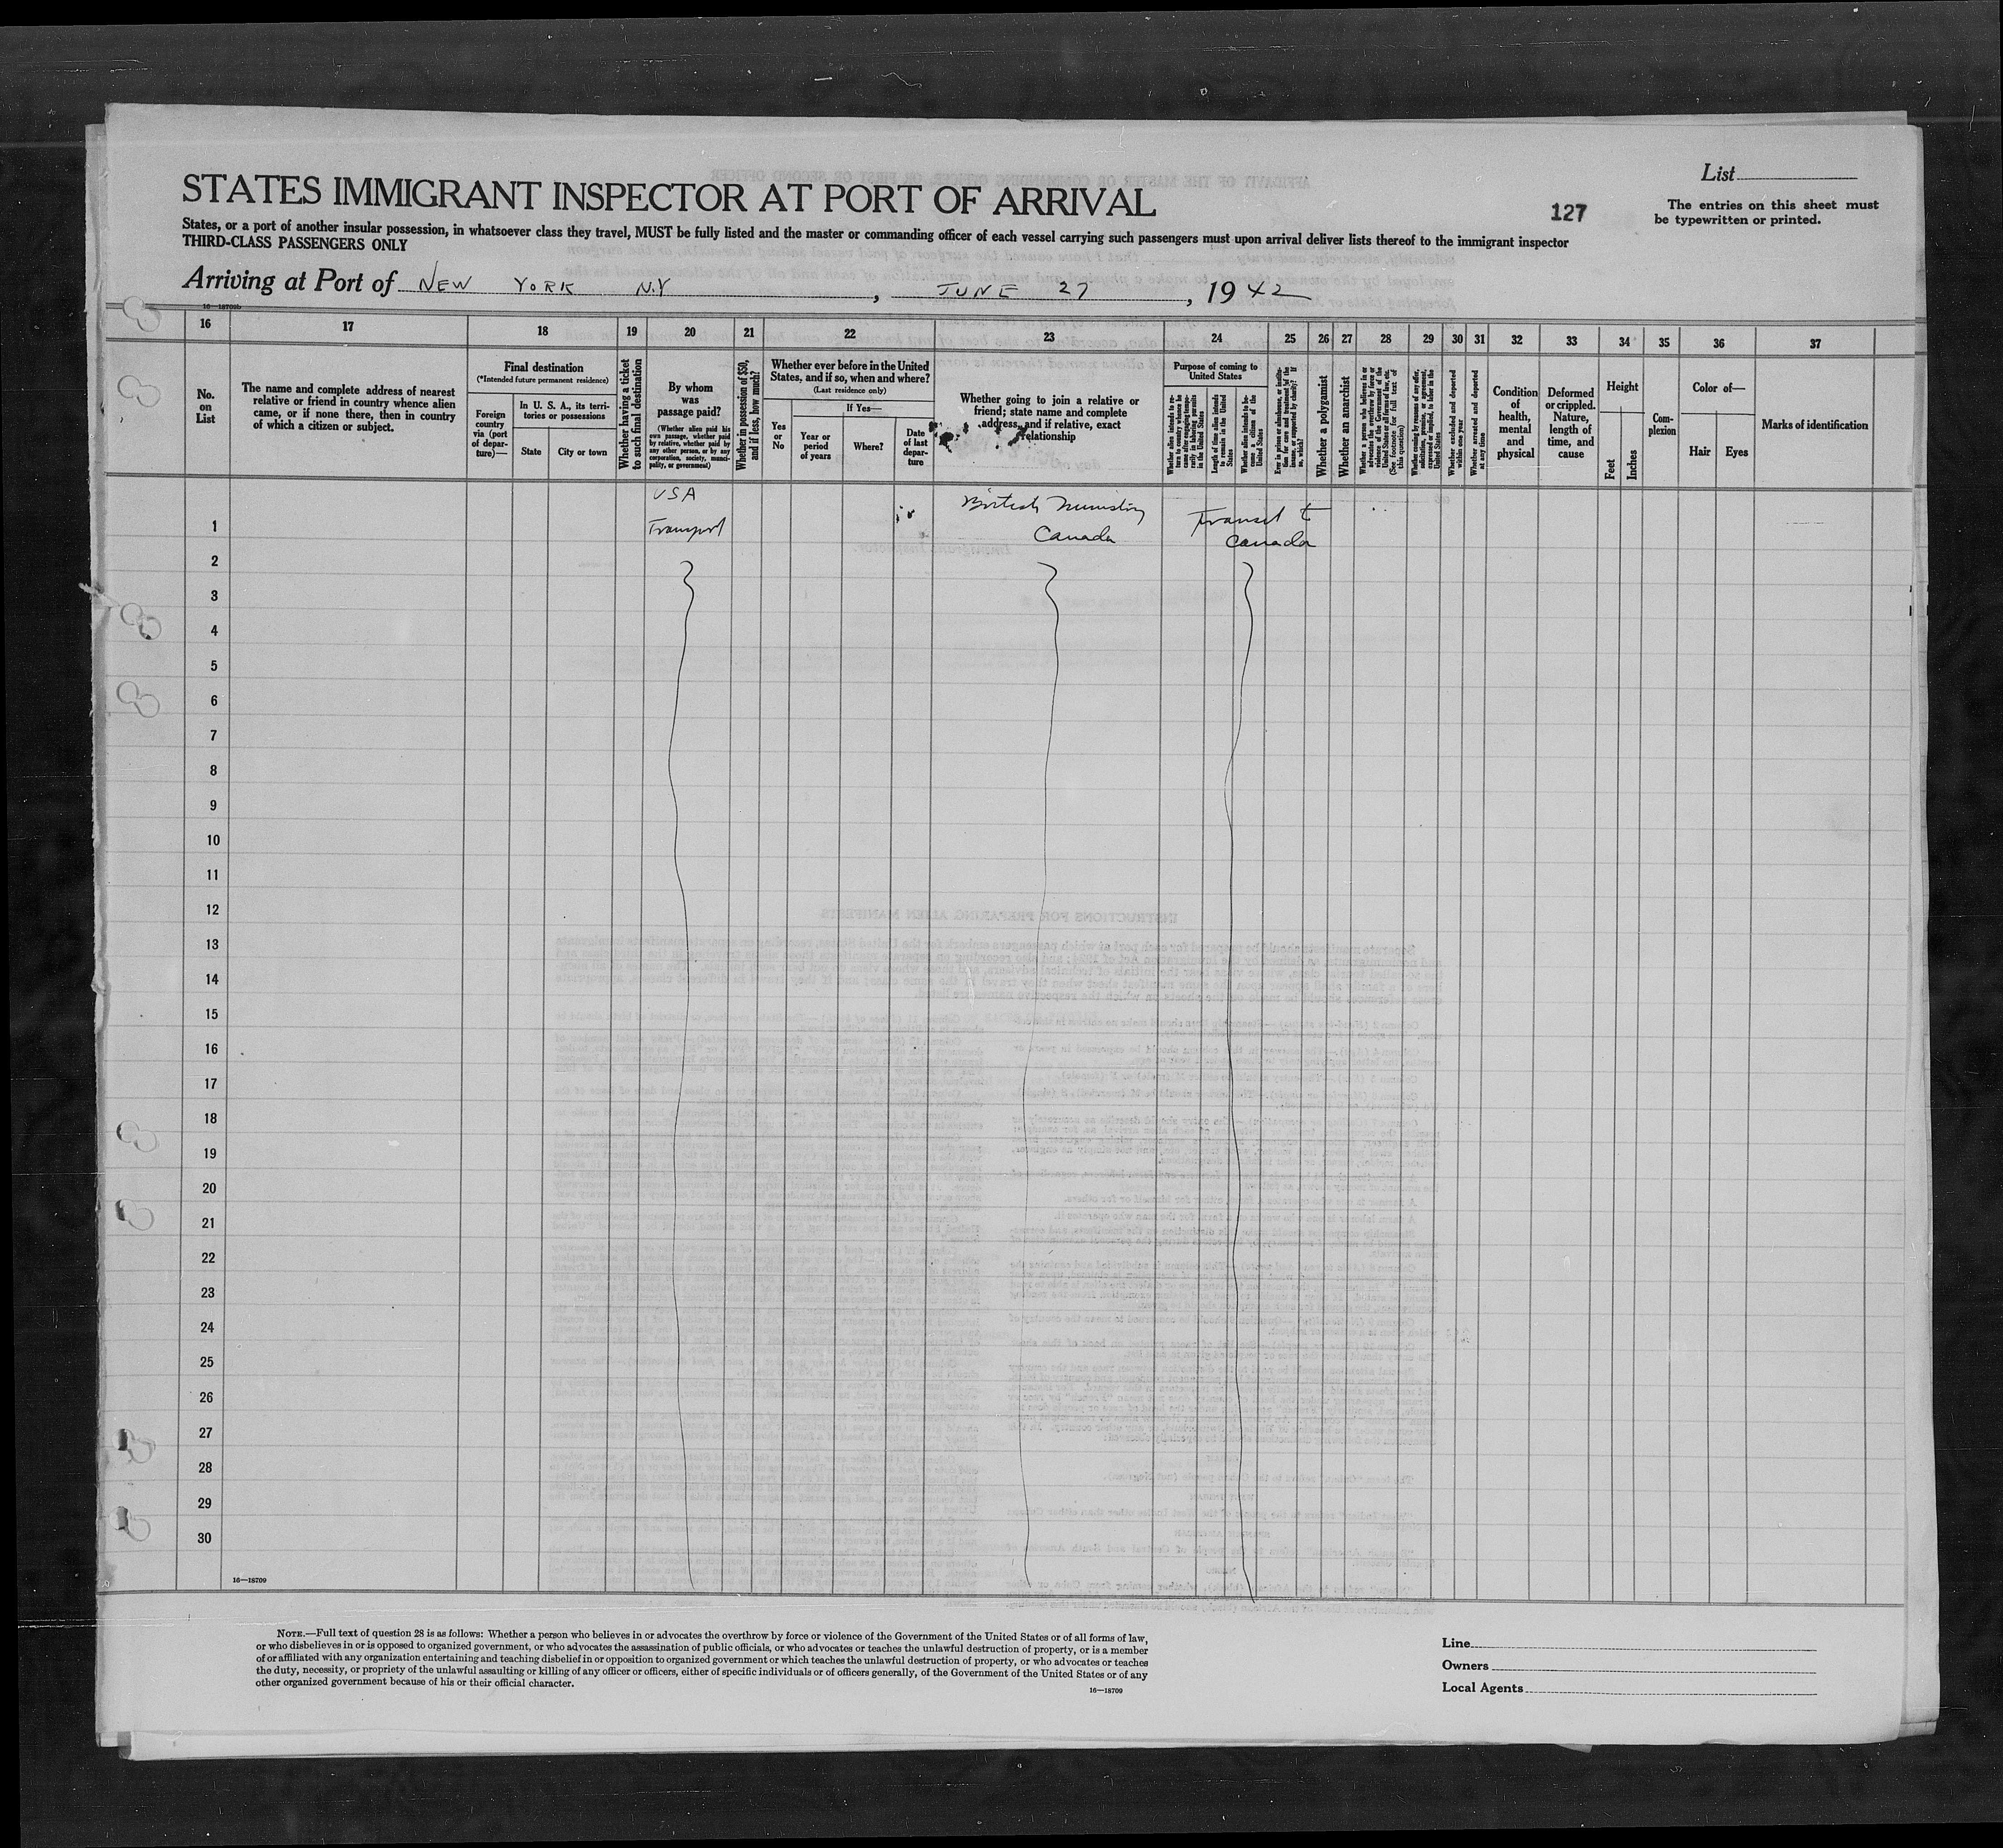 List
STATES IMMIGRANT INSPECTOR AT PORT OF ARRIVAL
127
The entries on this sheet must
be typewritten or printed.
States, or a port of another insular possession, in whatsoever class they travel, MUST be fully listed and the master or commanding officer of each vessel carrying such passengers must upon arrival deliver lists thereof to the immigrant inspector
THIRD-CLASS PASSENGERS ONLY
Arriving at Port of NEW YORK N.Y, JUNE 27, 1942
16 17 18 19 20 21 22 23 24 25 26 27 28 29 30 31 32 33 34 35 36 37
No.
on
List
The name and complete address of nearest
relative or friend in country whence alien
came, or if none there, then in country
of which a citizen or subject.
Final destination
(*Intended future permanent residence)
Foreign
country
via (port
of depar-
ture)—
In U. S. A., its terri-
tories or possessions
State
City or town
Whether having a ticket
to such final destination
By whom
was
passage paid?
(Whether alien paid his
own passage, whether paid
by relative, whether paid by
any other person, or by any
corporation, society, munici-
pality, or government)
Whether in possession of $50,
and if less, how much?
Whether ever before in the United
States, and if so, when and where?
(Last residence only)
Yes
or
No
If Yes—
Year or
period
of years
Where?
Date
of last
depar-
ture
Whether going to join a relative or
friend; state name and complete
address, and if relative, exact
relationship
Purpose of coming to
United States
Length of time alien intends
to remain in the United
States
Whether alien intends to be-
come a citizen of the
United States
Whether a polygamist
Whether an anarchist
Whether excluded and deported
within one year
Whether arrested and deported
at any time
Condition
of
health,
mental
and
physical
Deformed
or crippled.
Nature,
length of
time, and
cause
Height
Feet
Inches
Com-
plexion
Color of—
Hair
Eyes
Marks of identification
USA
Transport
British Ministry
Canada
Transit to
Canada
1
2
3
4
5
6
7
8
9
10
11
12
13
14
15
16
17
18
19
20
21
22
23
24
25
26
27
28
29
30
16—18709
NOTE.—Full text of question 28 is as follows: Whether a person who believes in or advocates the overthrow by force or violence of the Government of the United States or of all forms of law,
or who disbelieves in or is opposed to organized government, or who advocates the assassination of public officials, or who advocates or teaches the unlawful destruction of property, or is a member
of or affiliated with any organization entertaining and teaching disbelief in or opposition to organized government or which teaches the unlawful destruction of property, or who advocates or teaches
the duty, necessity, or propriety of the unlawful assaulting or killing of any officer or officers, either of specific individuals or of officers generally, of the Government of the United States or of any
other organized government because of his or their official character.
16—18709
Line
Owners
Local Agents